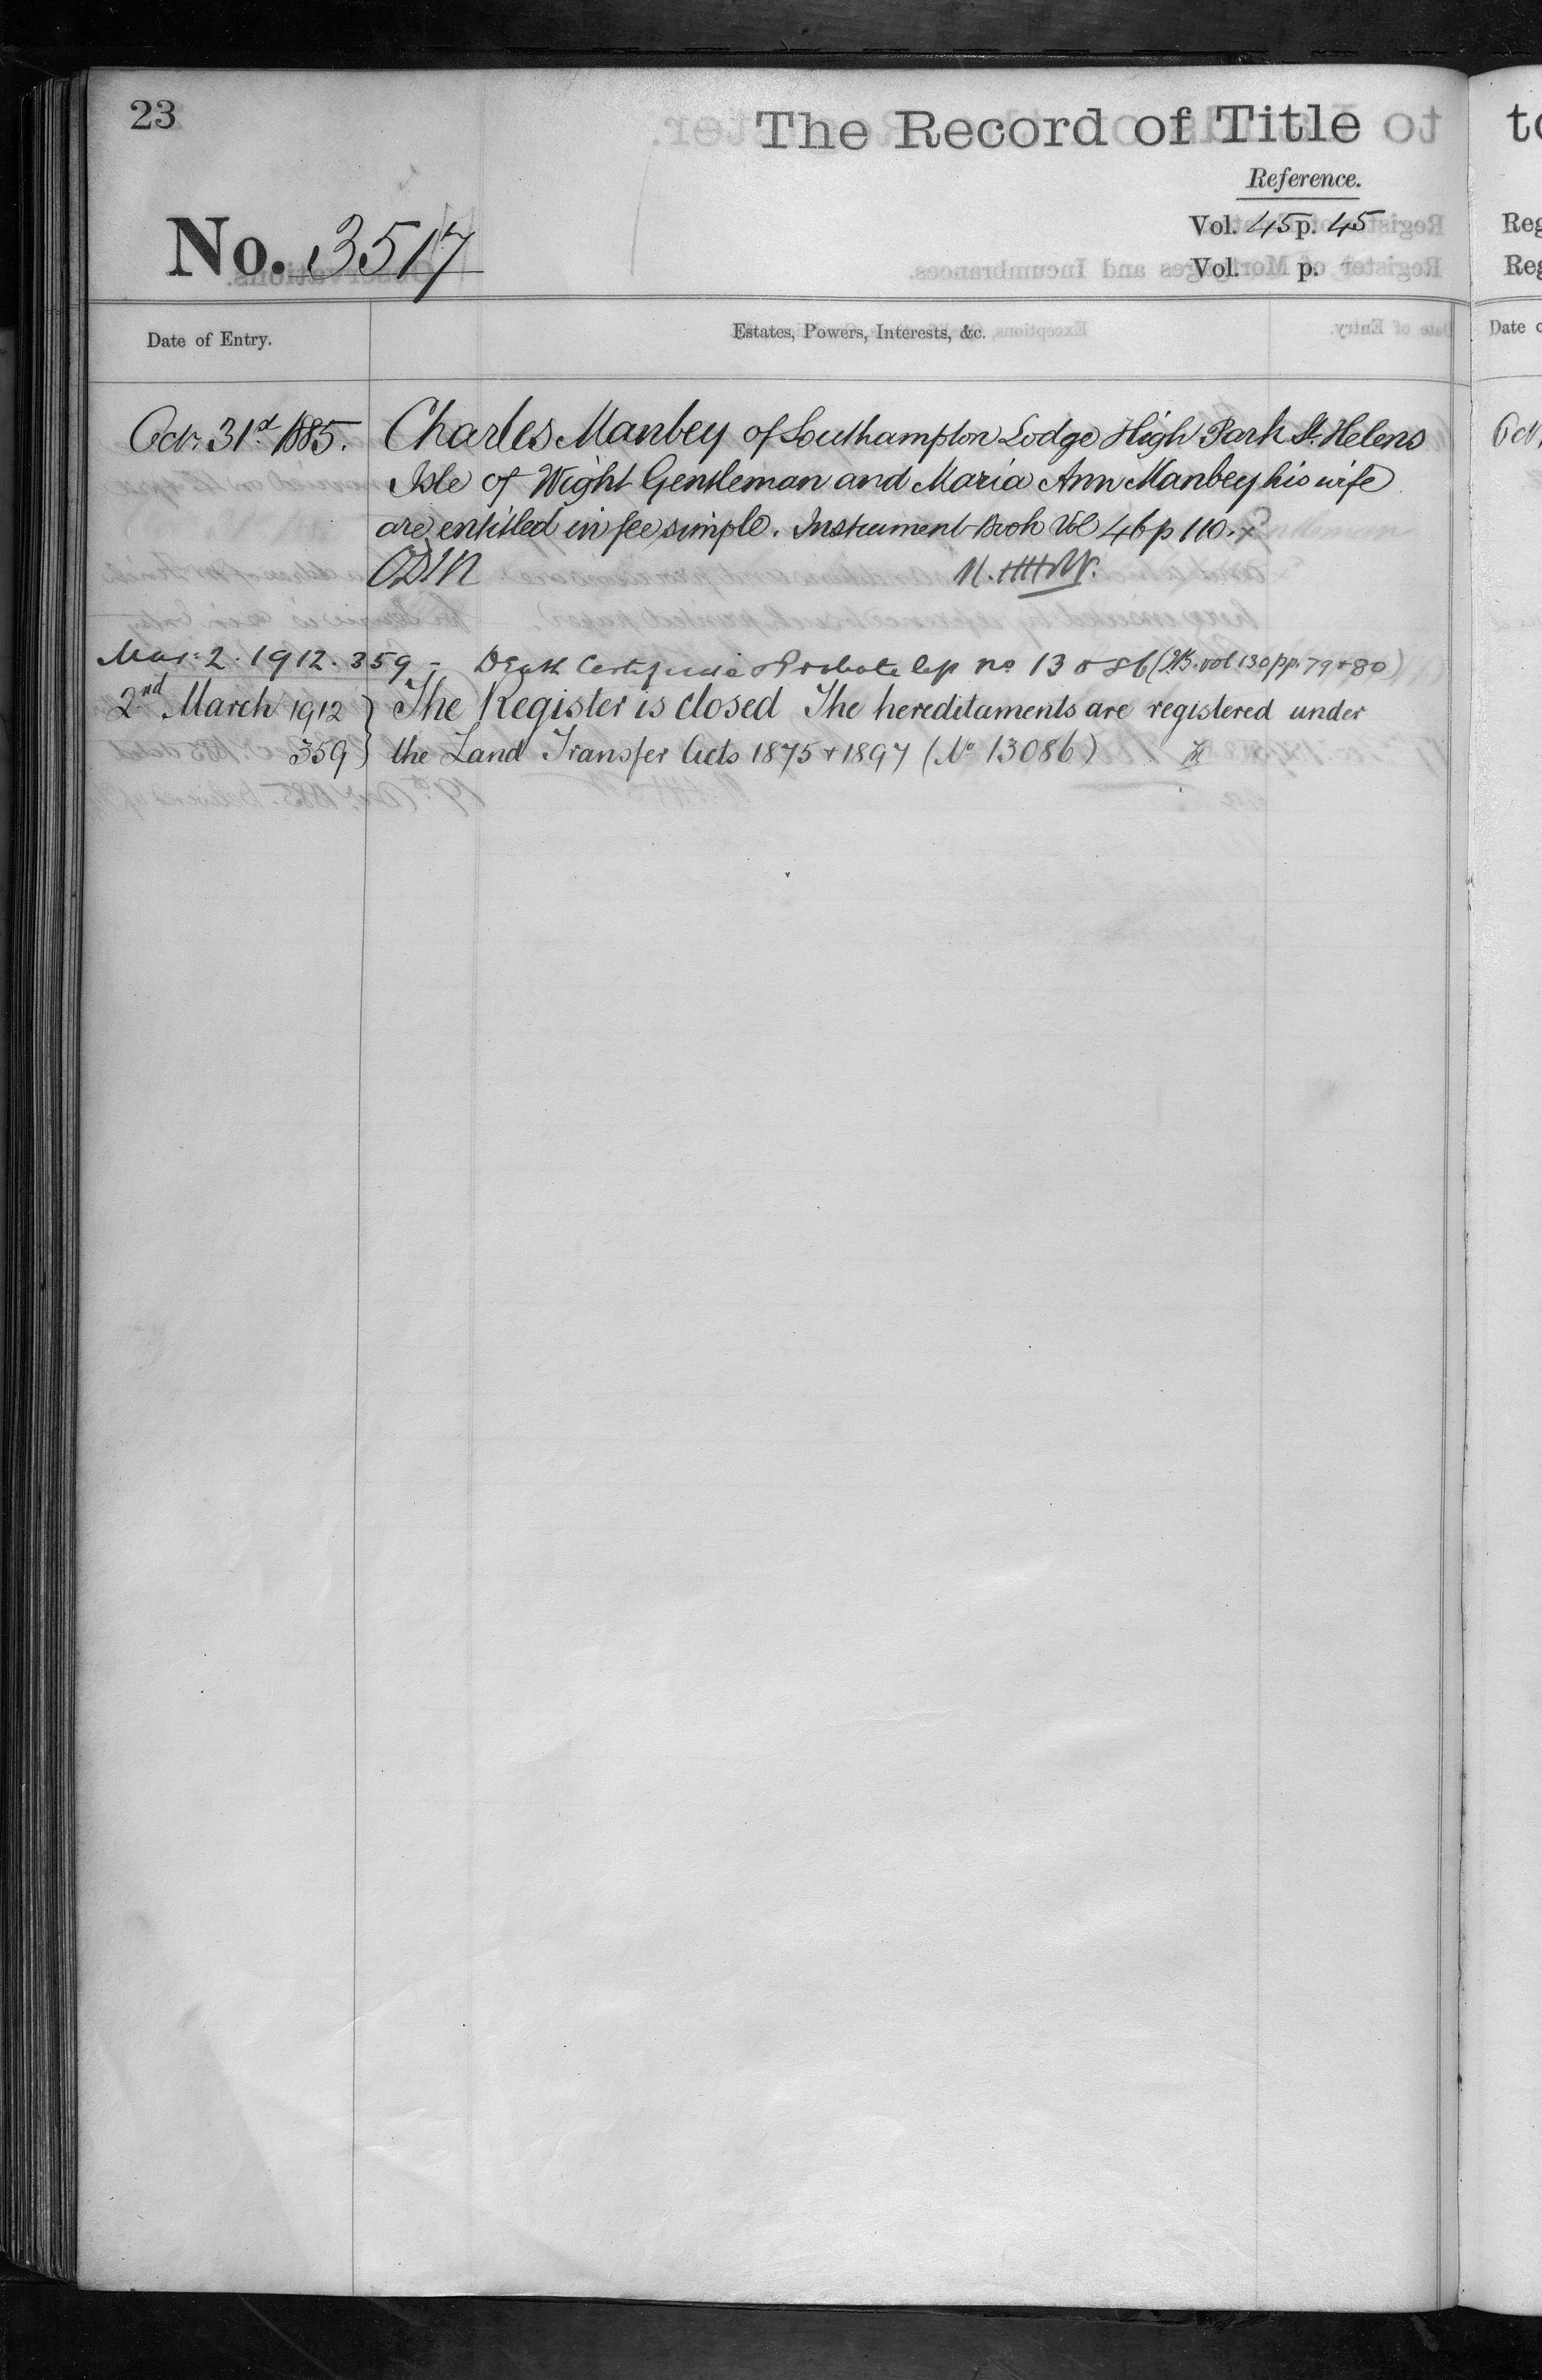 23
The Record of Title
Reference.
No. 3517
Vol. 45 p. 45
Vol. p.
Date of Entry.
Estates, Powers, Interests, &c.
Octr. 31st 1885. Charles Manbey of Southampton Lodge High Park St. Helens
Isle of Wight Gentleman and Maria Ann Manbey his wife
are entitled in fee simple. Instrument Book Vol 46 p 110. x
Mar: 2. 1912. 359 - Death Certificate & Probate 13086 (vol 130 pp. 79 & 80)
2nd March 1912 } The Register is closed The hereditaments are registered under
359 } the Land Transfer Acts 1875 & 1897 (No 13086)